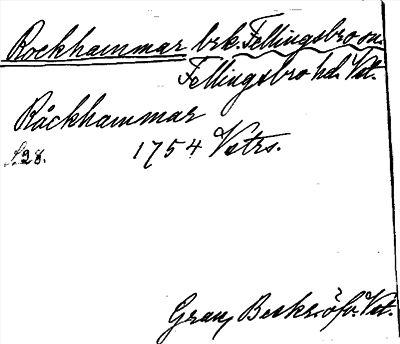 Rockhammar brk. Fellingsbro sn.
Fellingsbro hd. Vst.
Råckhammar
s. 28. 1754 Vstrs.
Grau, Beskr. öfv. Vst.